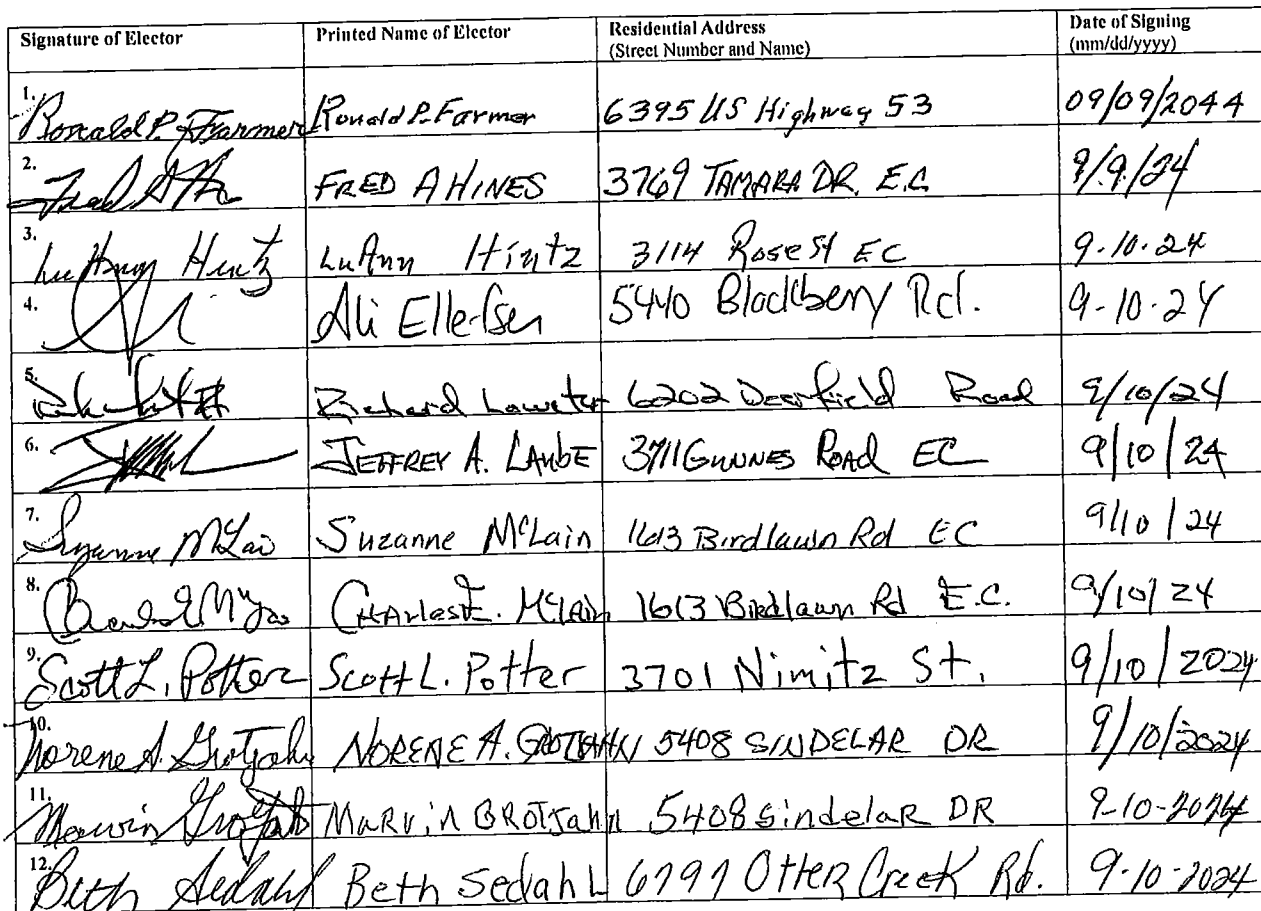 Signature of Elector Printed Name of Elector Residential Address (Street Number and Name) Date of Signing (mm/dd/yyyy)
1. Ronald P. Farmer Ronald P. Farmer 6395 US Highway 53 09/09/2044
2. FRED A HINES 3769 TAMARA DR. E.C. 9/9/24
3. LuAnn Hintz LuAnn Hintz 3114 Rose St EC 9-10-24
4. Ali Ellefsen 5440 Blackberry Rd. 9-10-24
5. Richard 6202 Deerfield Road 9/10/24
6. JEFFREY A. LAUBE 3711 GUNNES ROAD EC 9/10/24
7. Suzanne McLain Suzanne McLain 1613 Birdlawn Rd EC 9/10/24
8. CHARLES E. McLAIN 1613 Birdlawn Rd E.C. 9/10/24
9. Scott L. Potter Scott L. Potter 3701 Nimitz St. 9/10/2024
10. Norene A. Grotjahn NORENE A. GROTJAHN 5408 SINDELAR DR 9/10/2024
11. Marvin Grotjahn MARVIN GROTJAHN 5408 Sindelar DR 9-10-2024
12. Beth Sedahl Beth Sedahl 6797 Otter Creek Rd. 9-10-2024